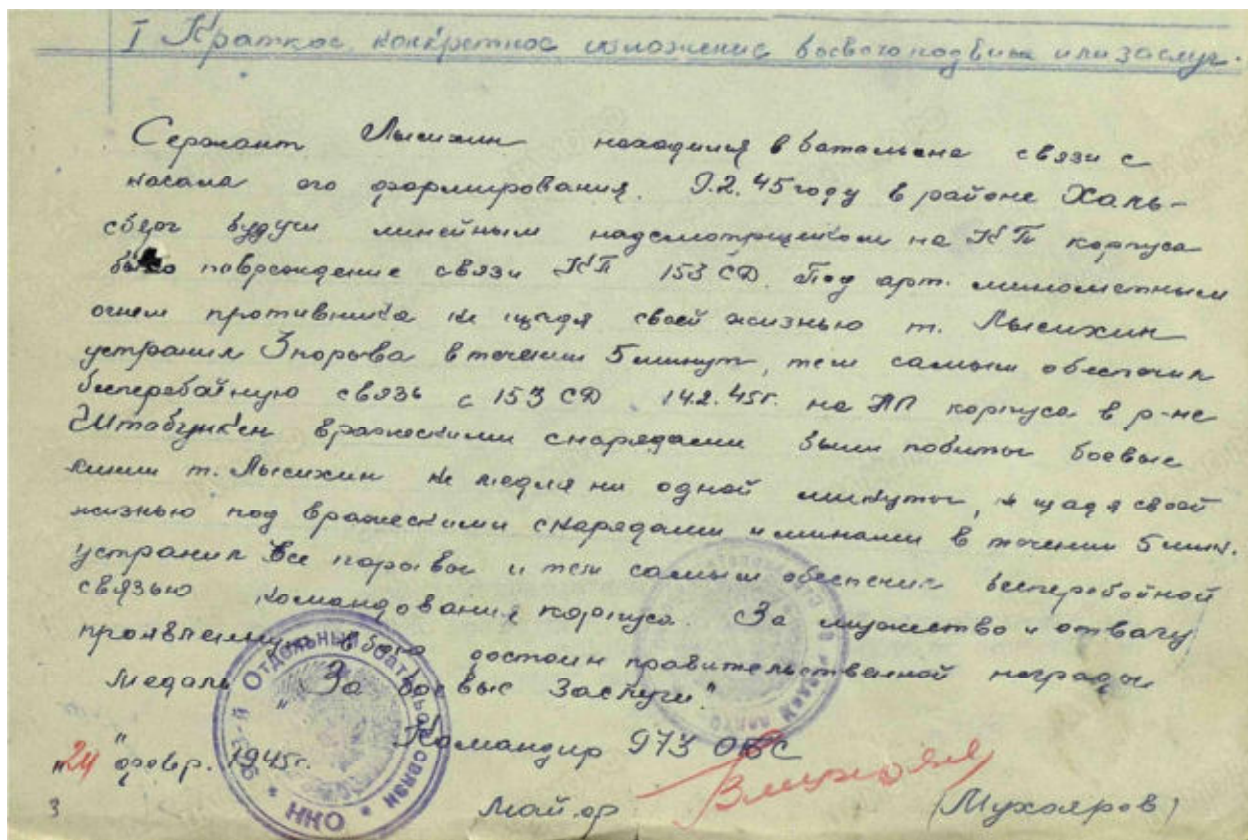 I Краткое, конкретное изложение боевого подвига или заслуг.
Сержант Лысихин находился в батальоне связи с
начала его формирования. 9.2.45 году в районе Халь-
сберг будучи линейным надсмотрщиком на КП корпуса
было повреждение связи КП 153 СД. Под арт. минометным
огнем противника не щадя своей жизнью т. Лысихин
устранил 3 порыва в течении 5 минут, тем самым обеспечил
бесперебойную связь с 153 СД 14.2.45г. на НП корпуса в р-не
Штабункен вражескими снарядами были побиты боевые
линии т. Лысихин не медля ни одной минуты, не щадя своей
жизнью под вражескими снарядами и минами в течении 5 мин.
устранил все порывы и тем самым обеспечил бесперебойной
связью командования корпуса. За мужество и отвагу
проявленную в бою достоин правительственной награды
Медаль "За боевые Заслуги".
Командир 973 ОБС
"24" февр. 1945г.
Майор (Мухояров)
3
Отдельный батальон связи
НКО